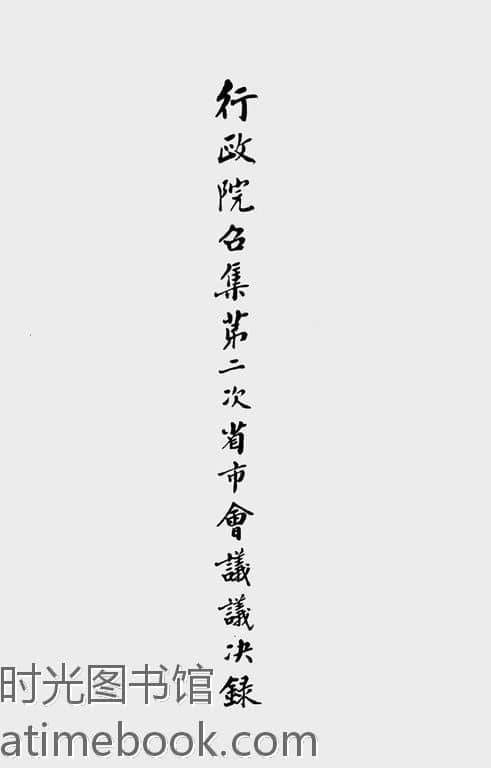 行政院召集第二次省市會議議决録
时光图书馆
atimebook.com